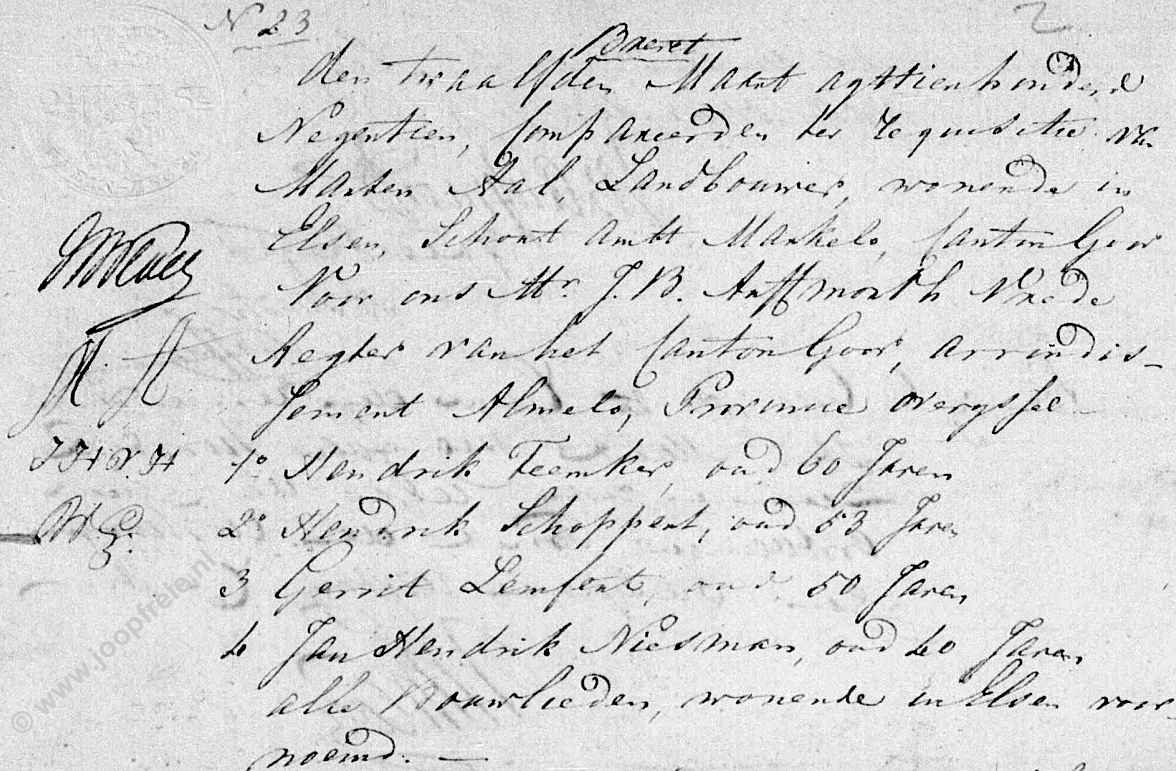 N 23
2
Baeret
den twaalfden Maart agttienhonderd
Negentien, Compareerden ter requisitie van
Marten Aal, Landbouwer, wonende in
Elsen, Schout ambt Markelo, Canton Goor
Voor ons Mr. J.B. Auffmorth Vrede
Regter van het Canton Goor, arrondis-
sement Almelo, Provincie Overyssel
1o Hendrik Feemker, oud 60 Jaren
2o Hendrik Schoppert, oud 53 Jaren
3 Gerrit Lemfert, oud 50 Jaren
4 Jan Hendrik Niesman, oud 40 Jaren
alle Bouwlieden, wonende in Elsen voor
noemd. —
© www.joopfreie.nl